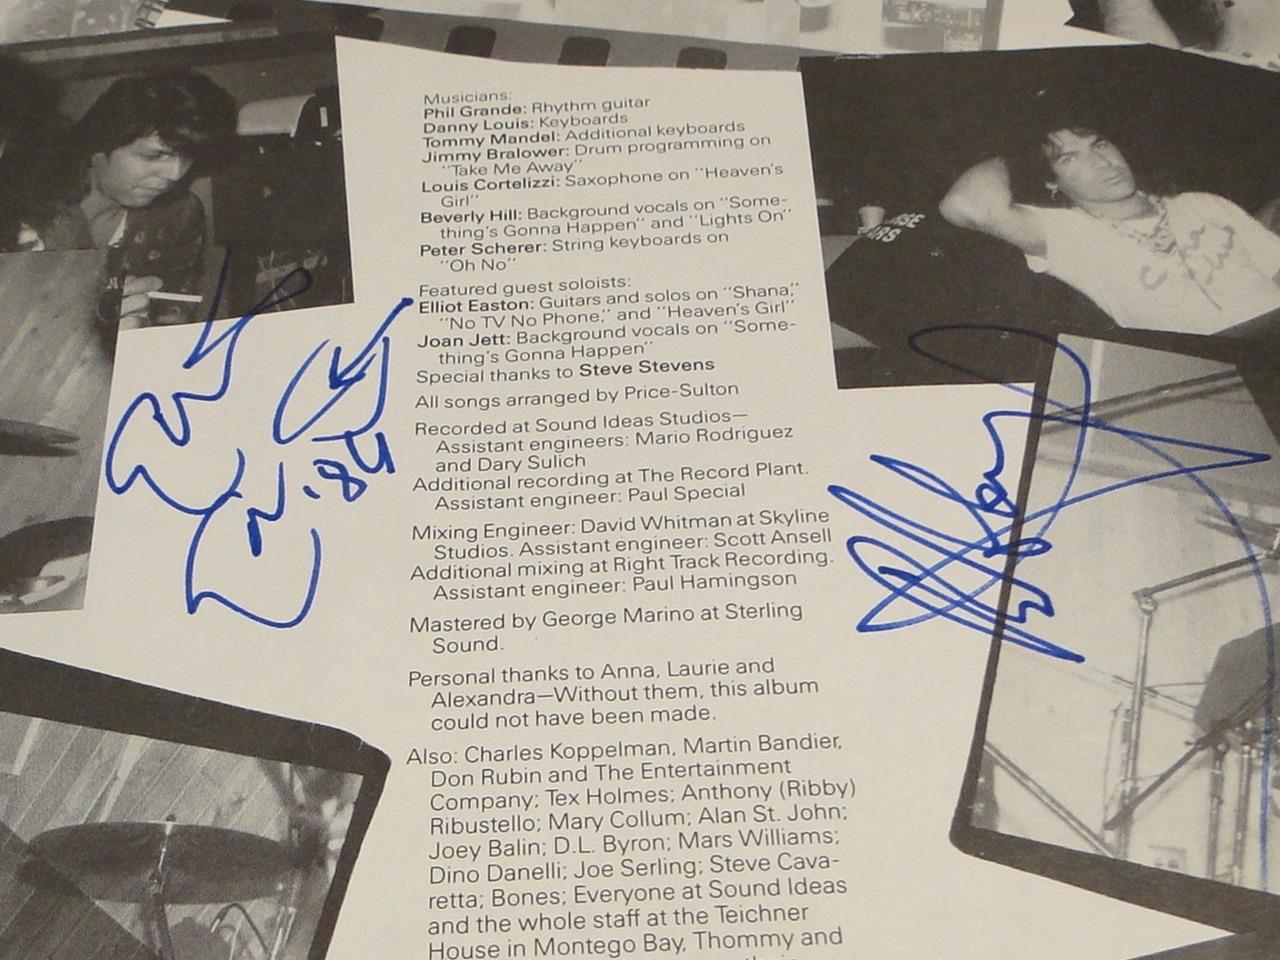 Musicians:
Phil Grande: Rhythm guitar
Danny Louis: Keyboards
Tommy Mandel: Additional keyboards
Jimmy Bralower: Drum programming on
"Take Me Away"
Louis Cortelizzi: Saxophone on "Heaven's
Girl"
Beverly Hill: Background vocals on "Some-
thing's Gonna Happen" and "Lights On"
Peter Scherer: String keyboards on
"Oh No"
Featured guest soloists:
Elliot Easton: Guitars and solos on "Shana,"
"No TV No Phone," and "Heaven's Girl"
Joan Jett: Background vocals on "Some-
thing's Gonna Happen"
Special thanks to Steve Stevens
All songs arranged by Price-Sulton
Recorded at Sound Ideas Studios—
Assistant engineers: Mario Rodriguez
and Dary Sulich
Additional recording at The Record Plant.
Assistant engineer: Paul Special
Mixing Engineer: David Whitman at Skyline
Studios. Assistant engineer: Scott Ansell
Additional mixing at Right Track Recording.
Assistant engineer: Paul Hamingson
Mastered by George Marino at Sterling
Sound.
Personal thanks to Anna, Laurie and
Alexandra—Without them, this album
could not have been made.
Also: Charles Koppelman, Martin Bandier,
Don Rubin and The Entertainment
Company; Tex Holmes; Anthony (Ribby)
Ribustello; Mary Collum; Alan St. John;
Joey Balin; D.L. Byron; Mars Williams;
Dino Danelli; Joe Serling; Steve Cava-
retta; Bones; Everyone at Sound Ideas
and the whole staff at the Teichner
House in Montego Bay, Thommy and